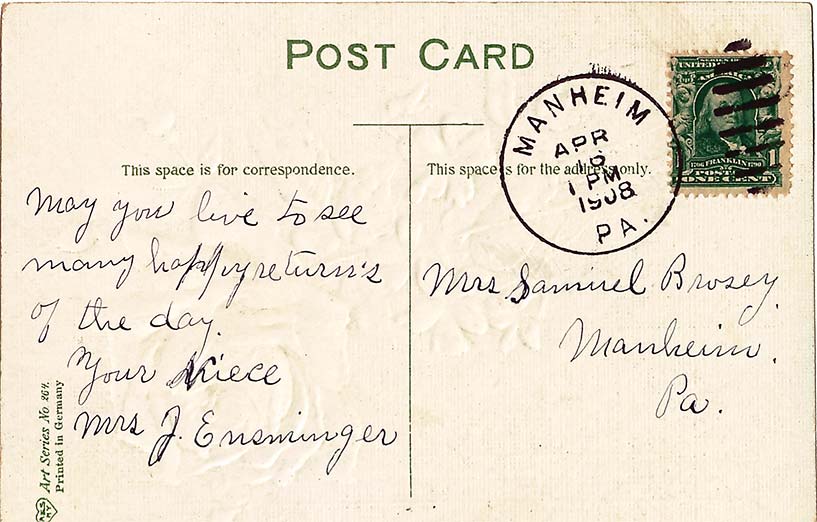 POST CARD
This space is for correspondence.
May you live to see
many happy return's
of the day.
Your Niece
Mrs J. Ensminger
Art Series No 264.
Printed in Germany
This space is for the address only.
MANHEIM
APR
1 PM
1908
PA.
UNITED
AMERICA
1706 FRANKLIN 1790
POSTAGE
1
ONE CENT
Mrs. Samuel Brosey
Manheim.
Pa.